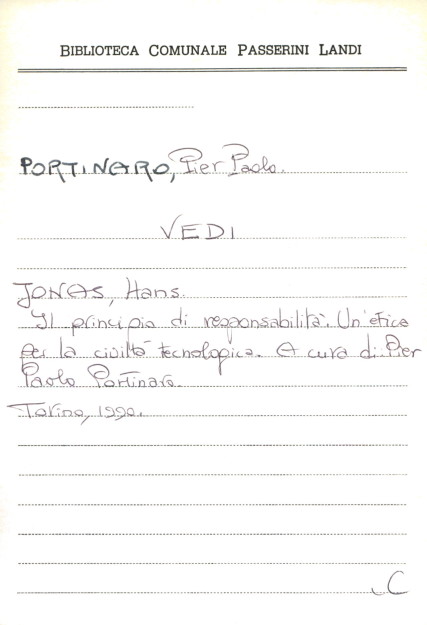 BIBLIOTECA COMUNALE PASSERINI LANDI
PORTINARO, Pier Paolo.
VEDI
JONAS, Hans.
Il principio di responsabilità. Un'etica
per la civiltà tecnologica. A cura di Pier
Paolo Portinaro.
Torino, 1990.
C